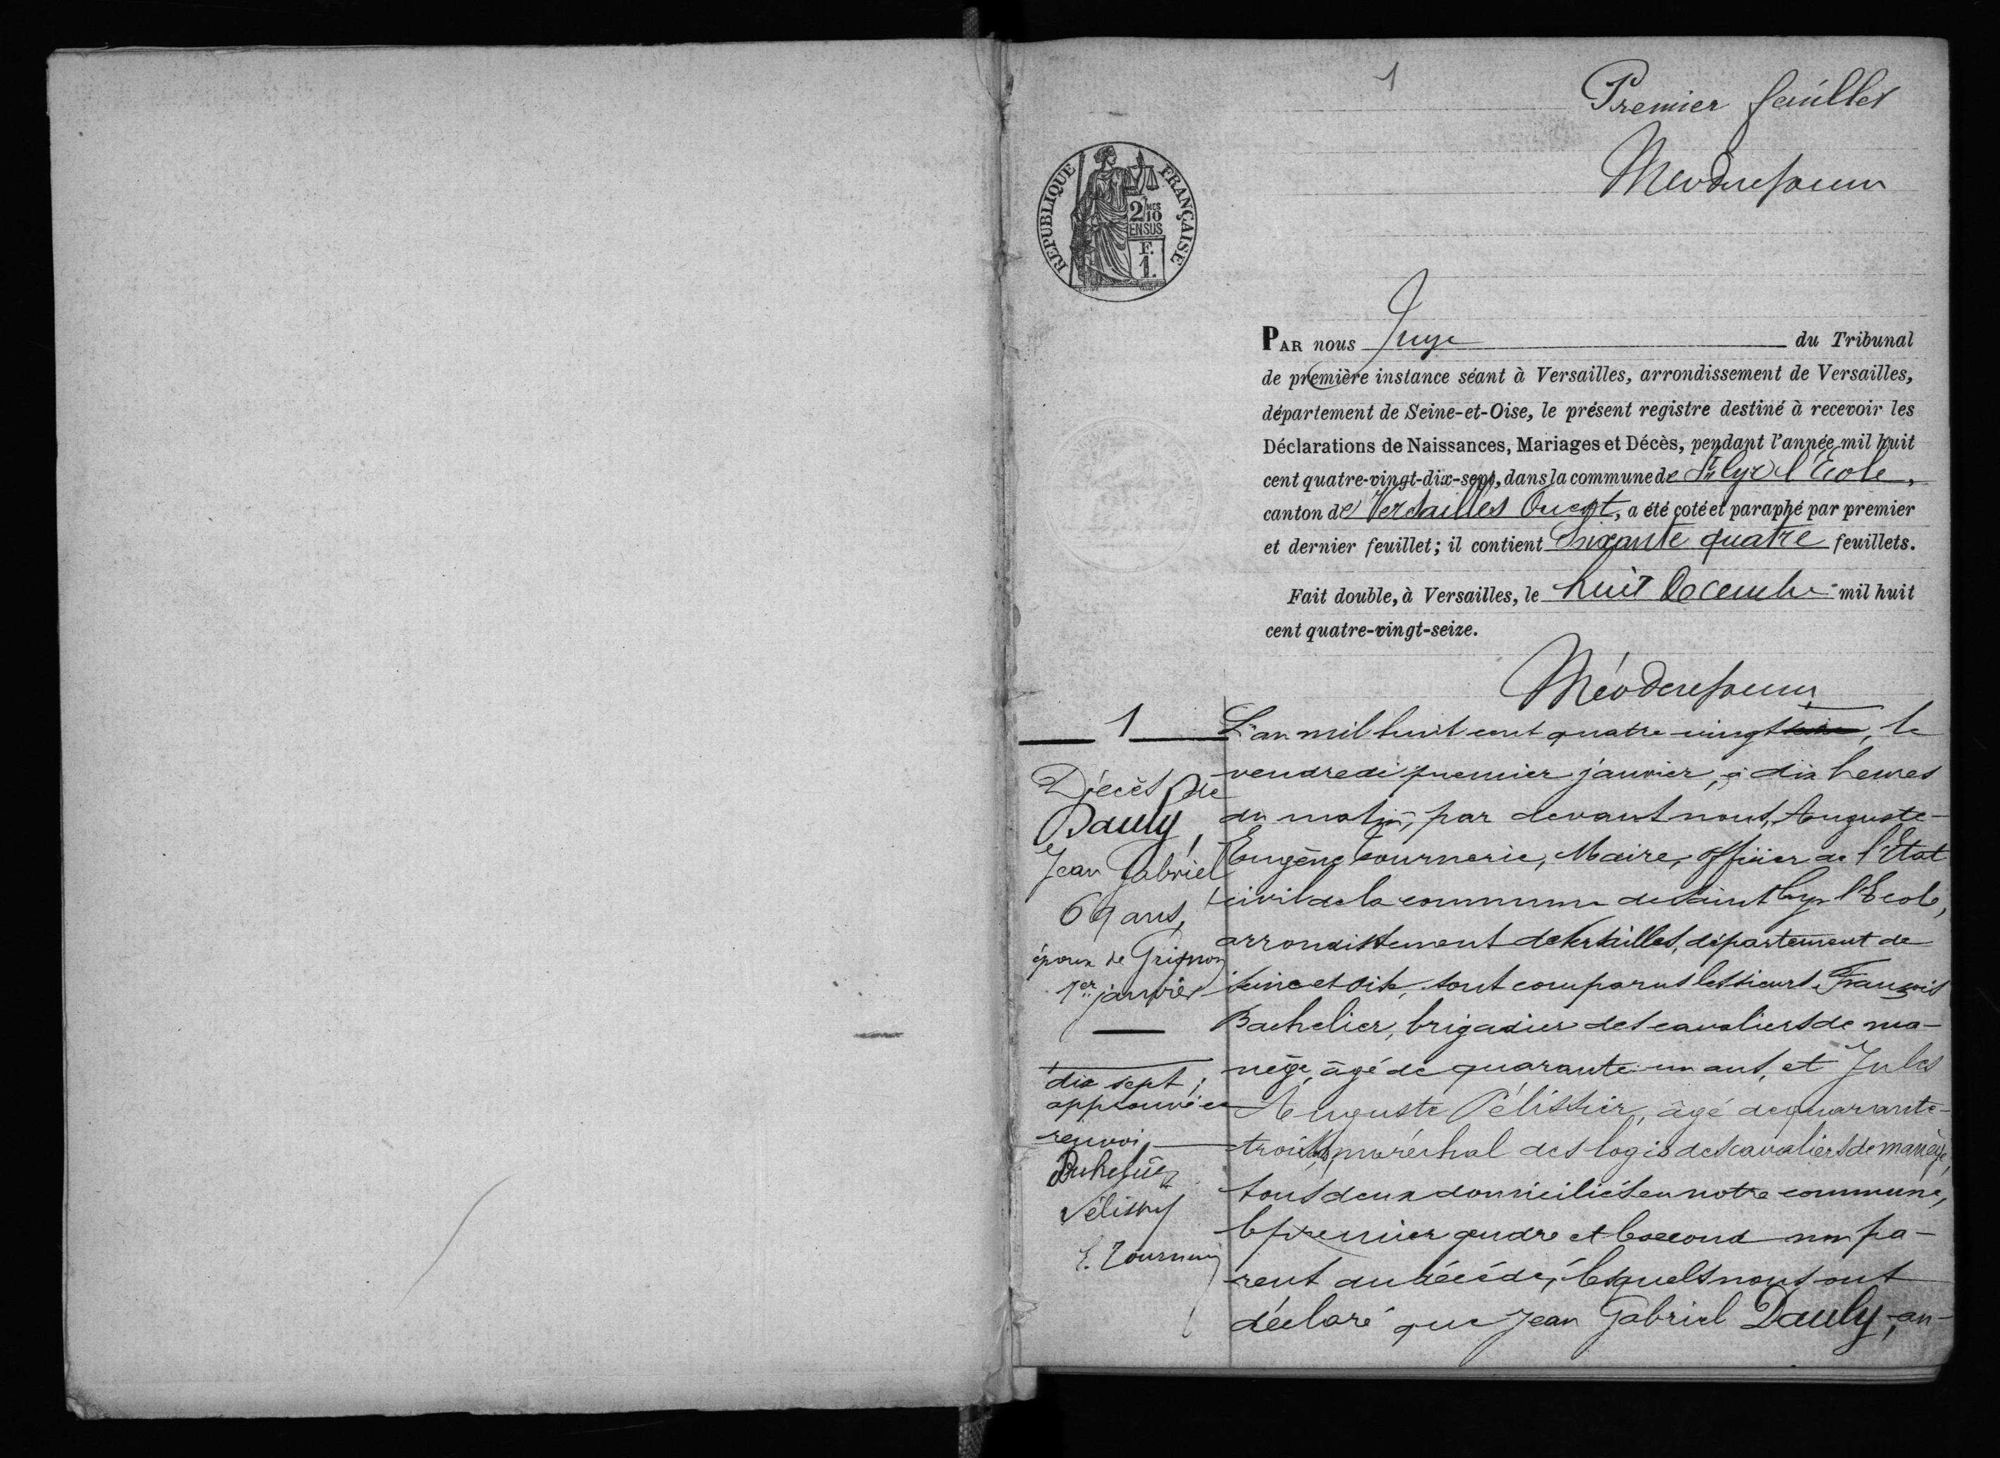 1
Premier feuillet
RÉPUBLIQUE FRANÇAISE
2 10 MES
EN SUS
F.
1.
PAR nous Juge du Tribunal
de première instance séant à Versailles, arrondissement de Versailles,
département de Seine-et-Oise, le présent registre destiné à recevoir les
Déclarations de Naissances, Mariages et Décès, pendant l'année mil huit
cent quatre-vingt-dix-sept, dans la commune de St Cyr l'Ecole,
canton de Versailles Ouest, a été coté et paraphé par premier
et dernier feuillet; il contient Soixante quatre feuillets.
Fait double, à Versailles, le huit Decembre mil huit
cent quatre-vingt-seize.
1
Décès de
Dauly,
Jean Gabriel
69 ans,
époux de Grignon
1er janvier
dix sept;
approuvé ce
renvoi
Bachelier
Pélissier
E. Tournerie
L'an mil huit cent quatre vingt, le
vendredi premier janvier, à dix heures
du matin, par devant nous, Auguste-
Eugène Tournerie, Maire, officier de l'Etat
civil de la commune de Saint Cyr l'Ecole,
arrondissement de Versailles, département de
Seine et Oise, sont comparus les sieurs François
Bachelier, brigadier des cavaliers de ma-
nège, âgé de quarante-un ans, et Jules
Auguste Pélissier, âgé de quarante-
trois ans, maréchal des logis des cavaliers de manège,
tous deux domiciliés en notre commune,
le premier gendre et le second non pa-
rent du décédé, lesquels nous ont
déclaré que Jean Gabriel Dauly, an-